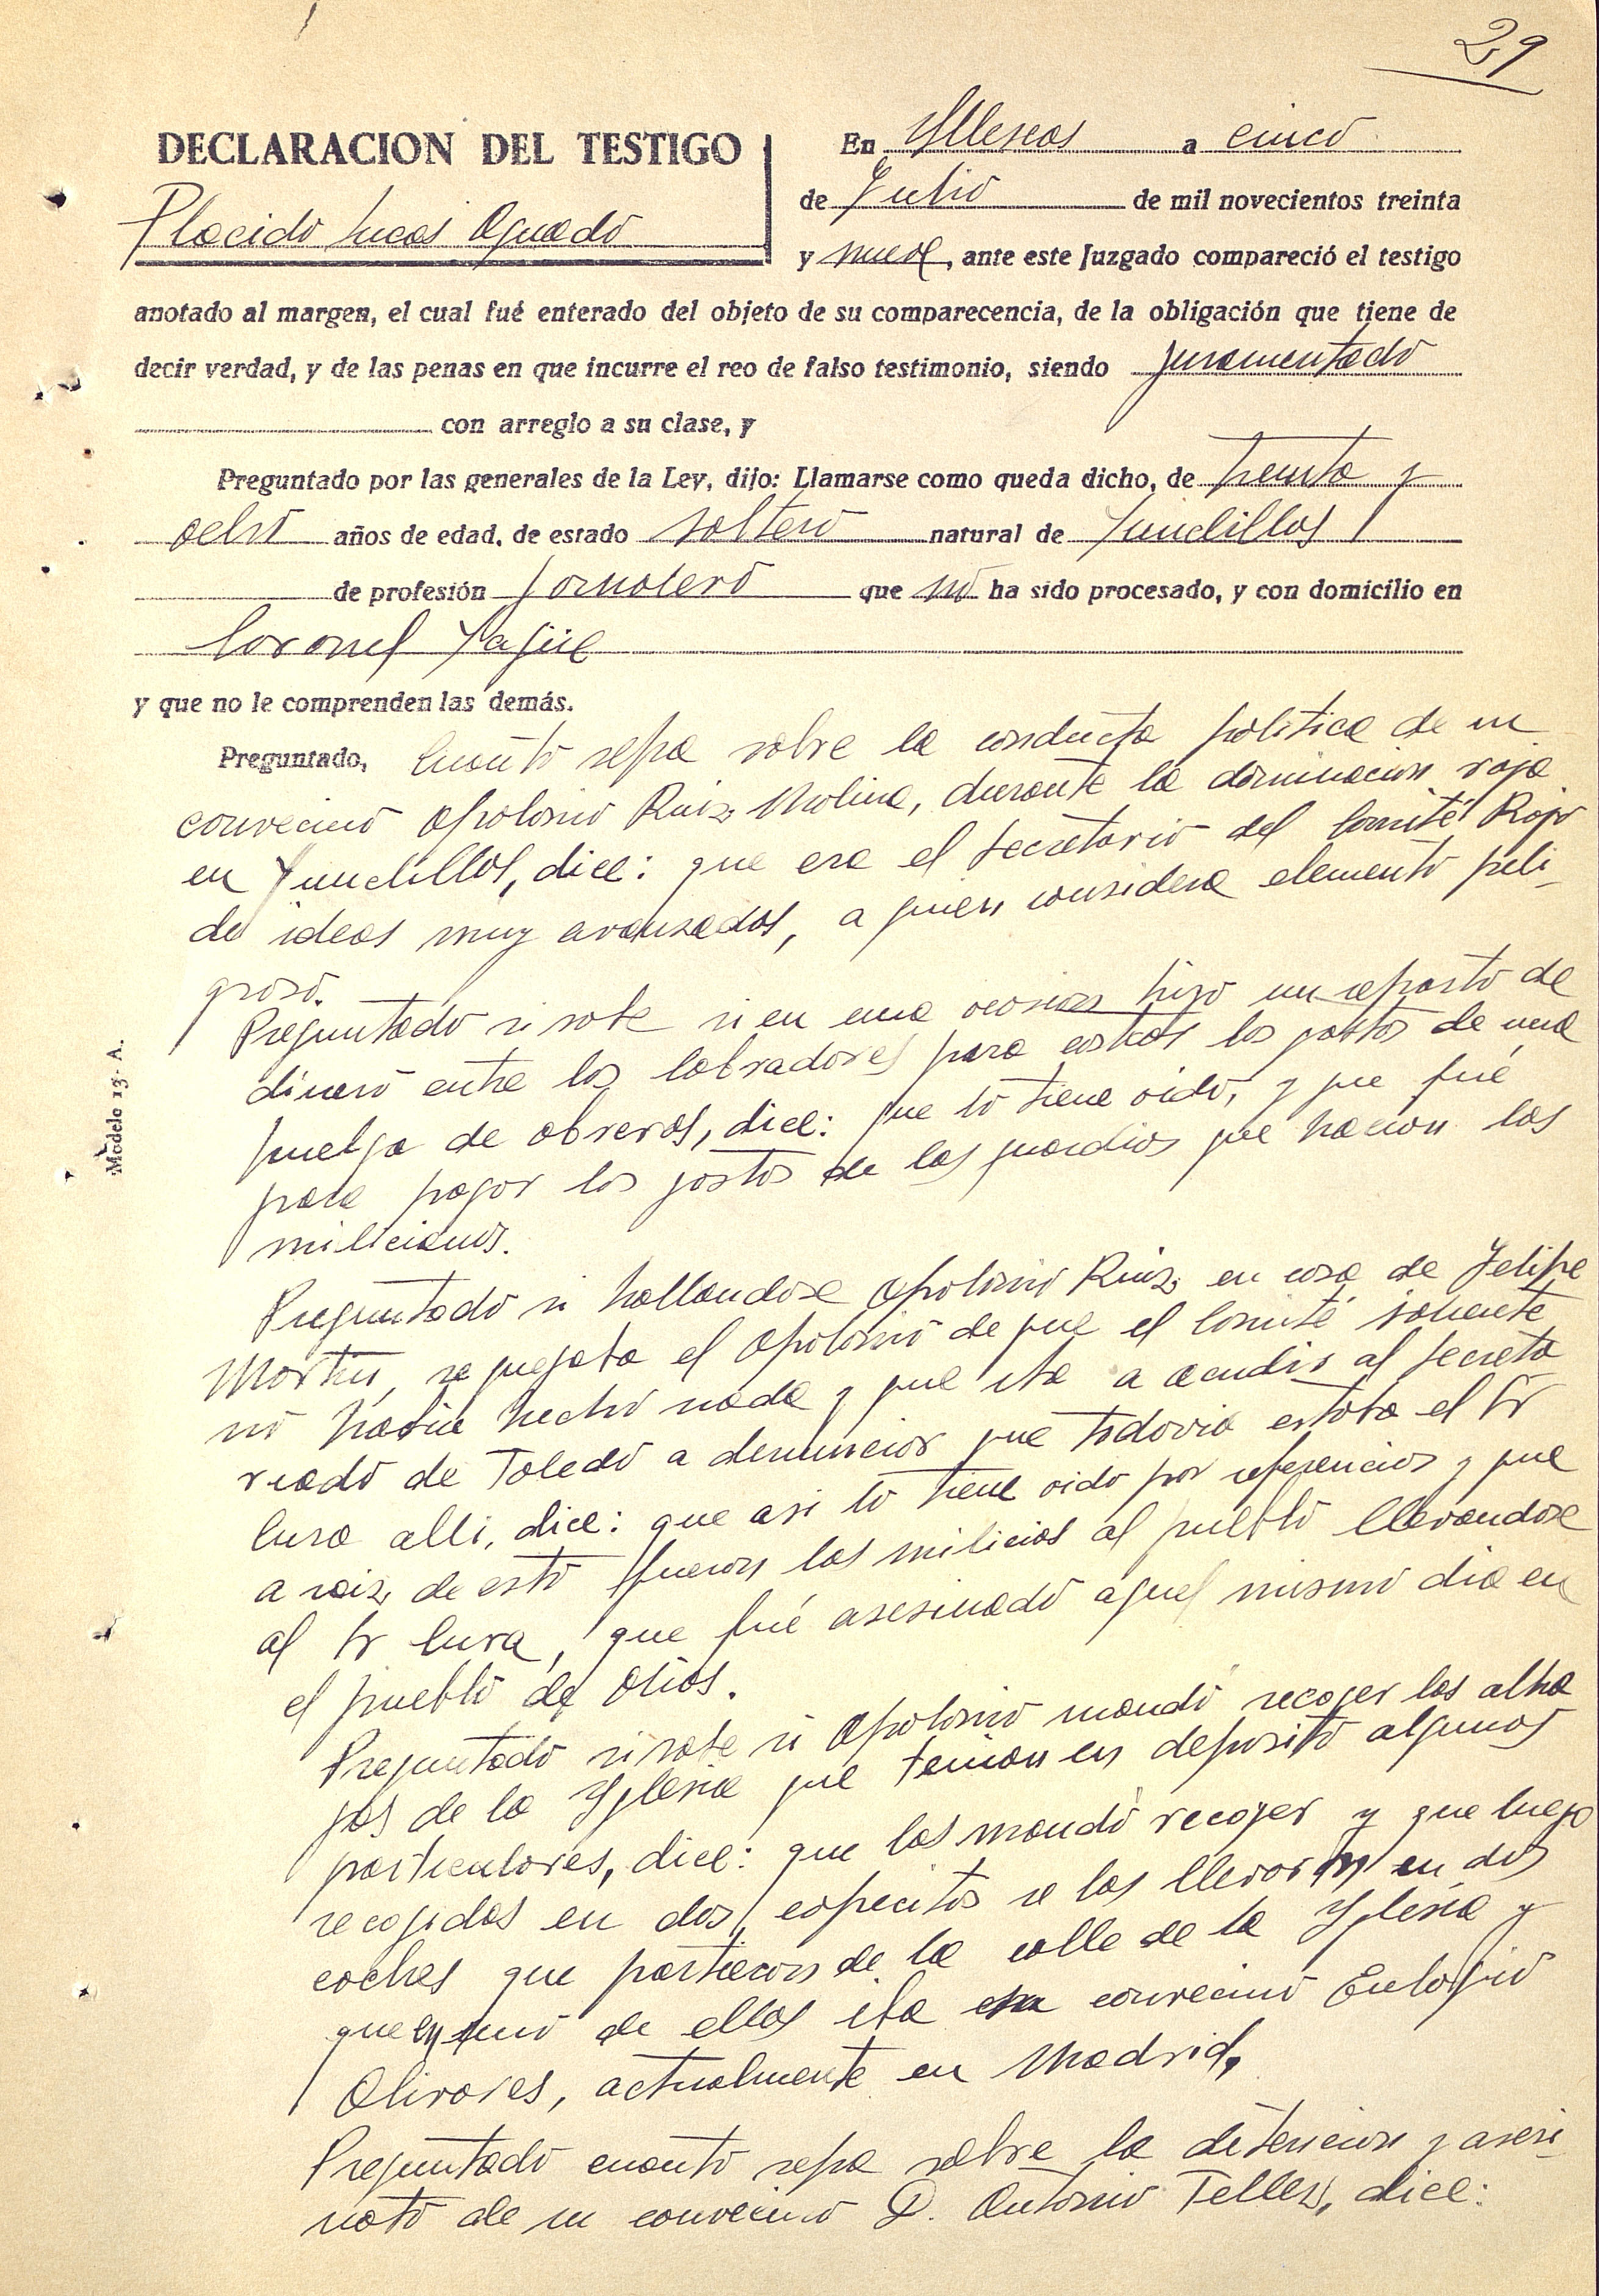 29
DECLARACION DEL TESTIGO
Placido Lucas Aguado
En Yllescas a cinco
de Julio de mil novecientos treinta
y nueve, ante este Juzgado compareció el testigo
anotado al margen, el cual fué enterado del objeto de su comparecencia, de la obligación que tiene de
decir verdad, y de las penas en que incurre el reo de falso testimonio, siendo juramentado
con arreglo a su clase, y
Preguntado por las generales de la Ley, dijo: Llamarse como queda dicho, de treinta y
ocho años de edad, de estado soltero natural de Yunclillos
de profesión Jornalero que no ha sido procesado, y con domicilio en
Coronel Yagüe
y que no le comprenden las demás.
Preguntado, cuanto sepa sobre la conducta politica de su
convecino Apolonio Ruiz Molina, durante la dominacion roja
en Yunclillos, dice: que era el Secretario del Comité Rojo
de ideas muy avanzadas, a quien considera elemento peli-
groso.
Preguntado si sabe si en una ocasion hizo un reparto de
dinero entre los labradores para los gastos de una
huelga de obreros, dice: que lo tiene oido, y que fué
para pagar los gastos de las guardias que hacian los
milicianos.
Preguntado si hallandose Apolonio Ruiz en casa de Felipe
Martin, se quejaba el Apolonio de que el Comité saliente
no habia hecho nada y que iba a acudir al Secreta
riado de Toledo a denunciar que todavia estaba el Sr
Cura alli, dice: que asi lo tiene oido por referencias y que
a raiz de esto fueron las milicias al pueblo llevandose
al Sr Cura, que fué asesinado aquel mismo dia en
el pueblo de Olias.
Preguntado si sabe si Apolonio mandó recoger las alha
jas de la Yglesia que tenian en deposito algunos
particulares, dice: que las mandó recoger y que luego
recogidas en dos capacitos se las llevaron en dos
coches que partieron de la calle de la Yglesia y
que en uno de ellos iba su convecino Eulogio
Olivares, actualmente en Madrid.
Preguntado cuanto sepa sobre la detencion y asesi-
nato de su convecino D. Antonio Tellez, dice:
Modelo 13- A.